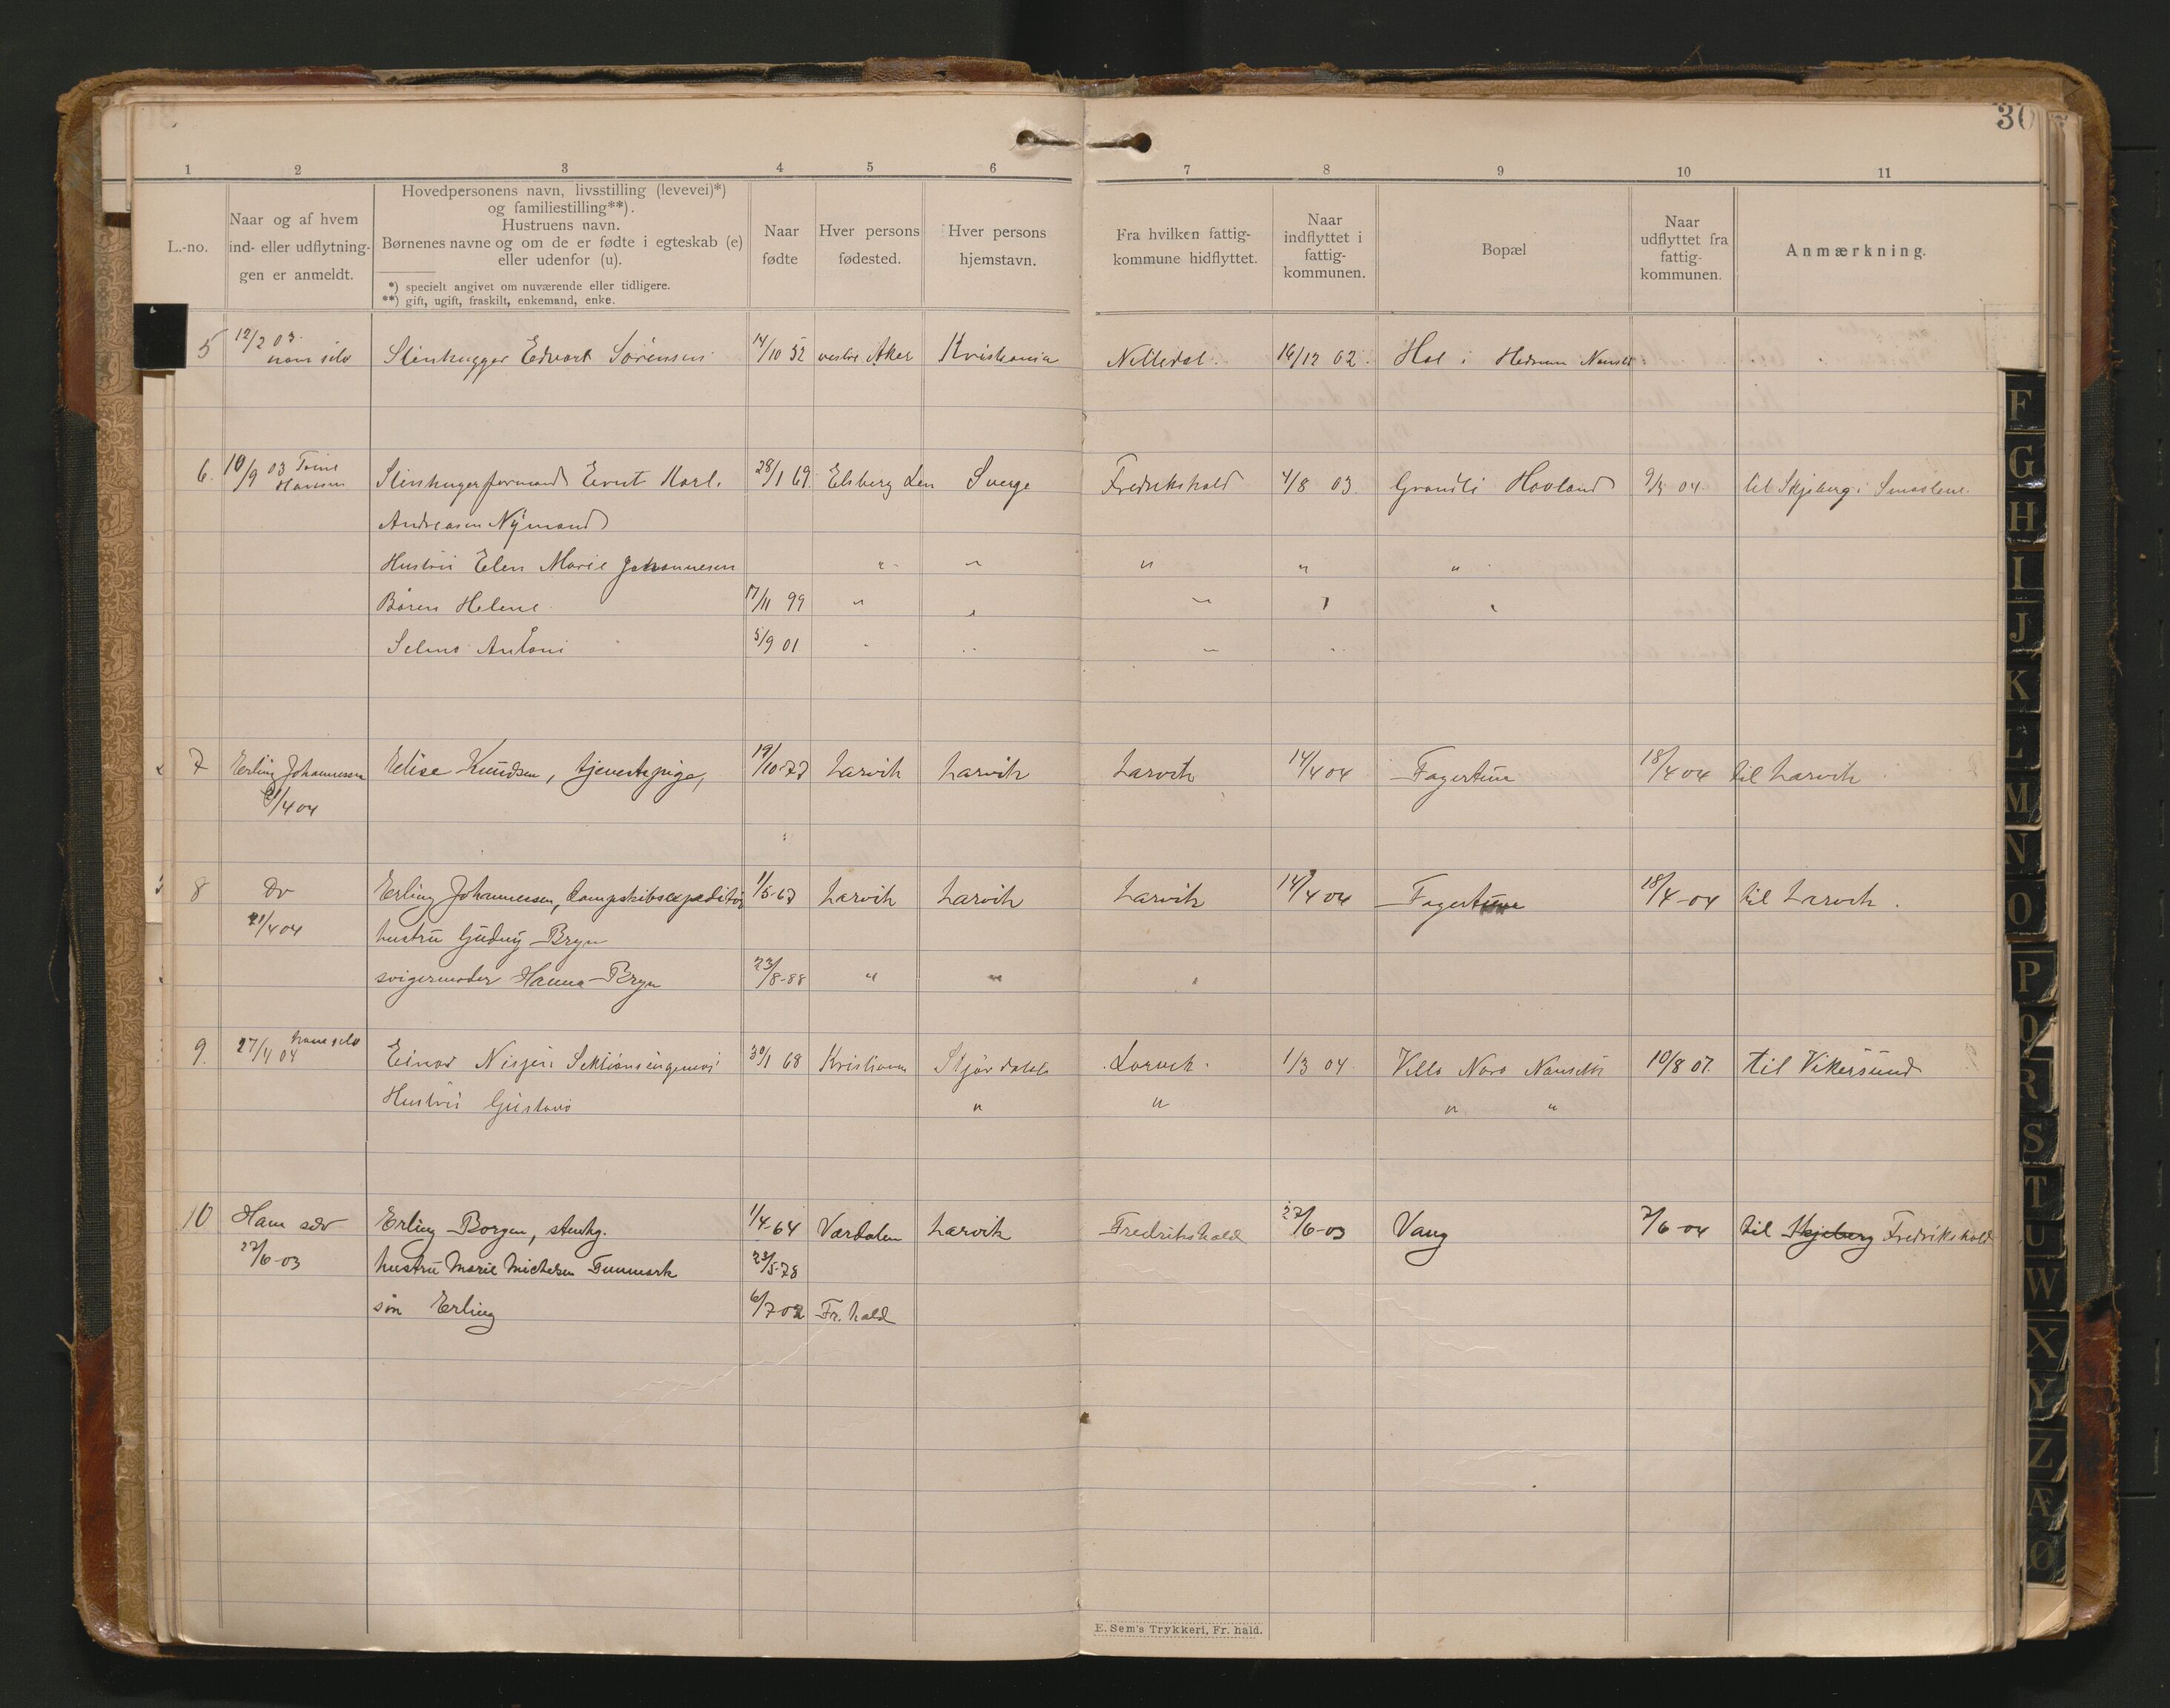 30
1 2 3 4 5 6 7 8 9 10 11
L.-no.
Naar og af hvem
ind- eller udflytnin-
gen er anmeldt.
Hovedpersonens navn, livsstilling (levevei)*)
og familiestilling**).
Hustruens navn.
Børnenes navne og om de er fødte i egteskab (e)
eller udenfor (u).
*) specielt angivet om nuværende eller tidligere.
**) gift, ugift, fraskilt, enkemand, enke.
Naar
fødte
Hver persons
fødested.
Hver persons
hjemstavn.
Fra hvilken fattig-
kommune hidflyttet.
Naar
indflyttet i
fattig-
kommunen.
Bopæl
Naar
udflyttet fra
fattig-
kommunen.
Anmærkning.
5 12/2 03. Stenhugger Edvart Sörensen 14/10 52 vestre Aker Kristiania Nittedal. 16/12 02. Hol i Hedrum
ham selv
6. 10/9 03 Hansen Stenhugerformand Ernt Karl. 28/1 69. Elsberg Len Sverge Fredrikshald 4/8 03. Grandli Hovland 9/5 04. til Skjeberg i Smaalene.
Andreasen Nÿmand
Hustrü Elen Marie Johannesen " " " " "
Bören Helene. 17/11 99 " " " " "
Selma Antoni 5/9 01 " " " "
7 Erling Johannessen Elise Knüdsen, tjenestepige, 19/10-77 Larvik Larvik Larvik 14/4 04 Fagertün 18/4 04 til Larvik
21/4 04
8 Do Erling Johannessen, dampskibsexpeditör 1/5-67 Larvik Larvik Larvik 14/4 04 Fagertun 18/4-04 til Larvik.
21/4 04 hustrü Güdnÿ Bryn
svigermoder Hanna Bryn 23/8-88 " " "
9. 27/4 04 ham selv Einar Sektionsingeniör 30/1 68 Kristiania Stjördalen Larvik. 1/3 04. Villa Nora Nanseth 10/8 07. til Vikersünd
Hustrü Güstava " " " "
10 Ham selv Erling Borgen, stenhg. 1/4-64 Værdalen Larvik Fredrikshald 27/6-03 Vang 7/6-04 til Skjeberg Fredrikshald
27/6-03 hustrü Marie Michelsen Funmark 23/5-78
sön Erling 6/7 02 Fr. hald
E. Sem's Trykkeri, Fr. hald.
F
G
H
I
J
K
L
M
N
O
P
Q
R
S
T
U
W
X
Y
Z
Æ
Ø